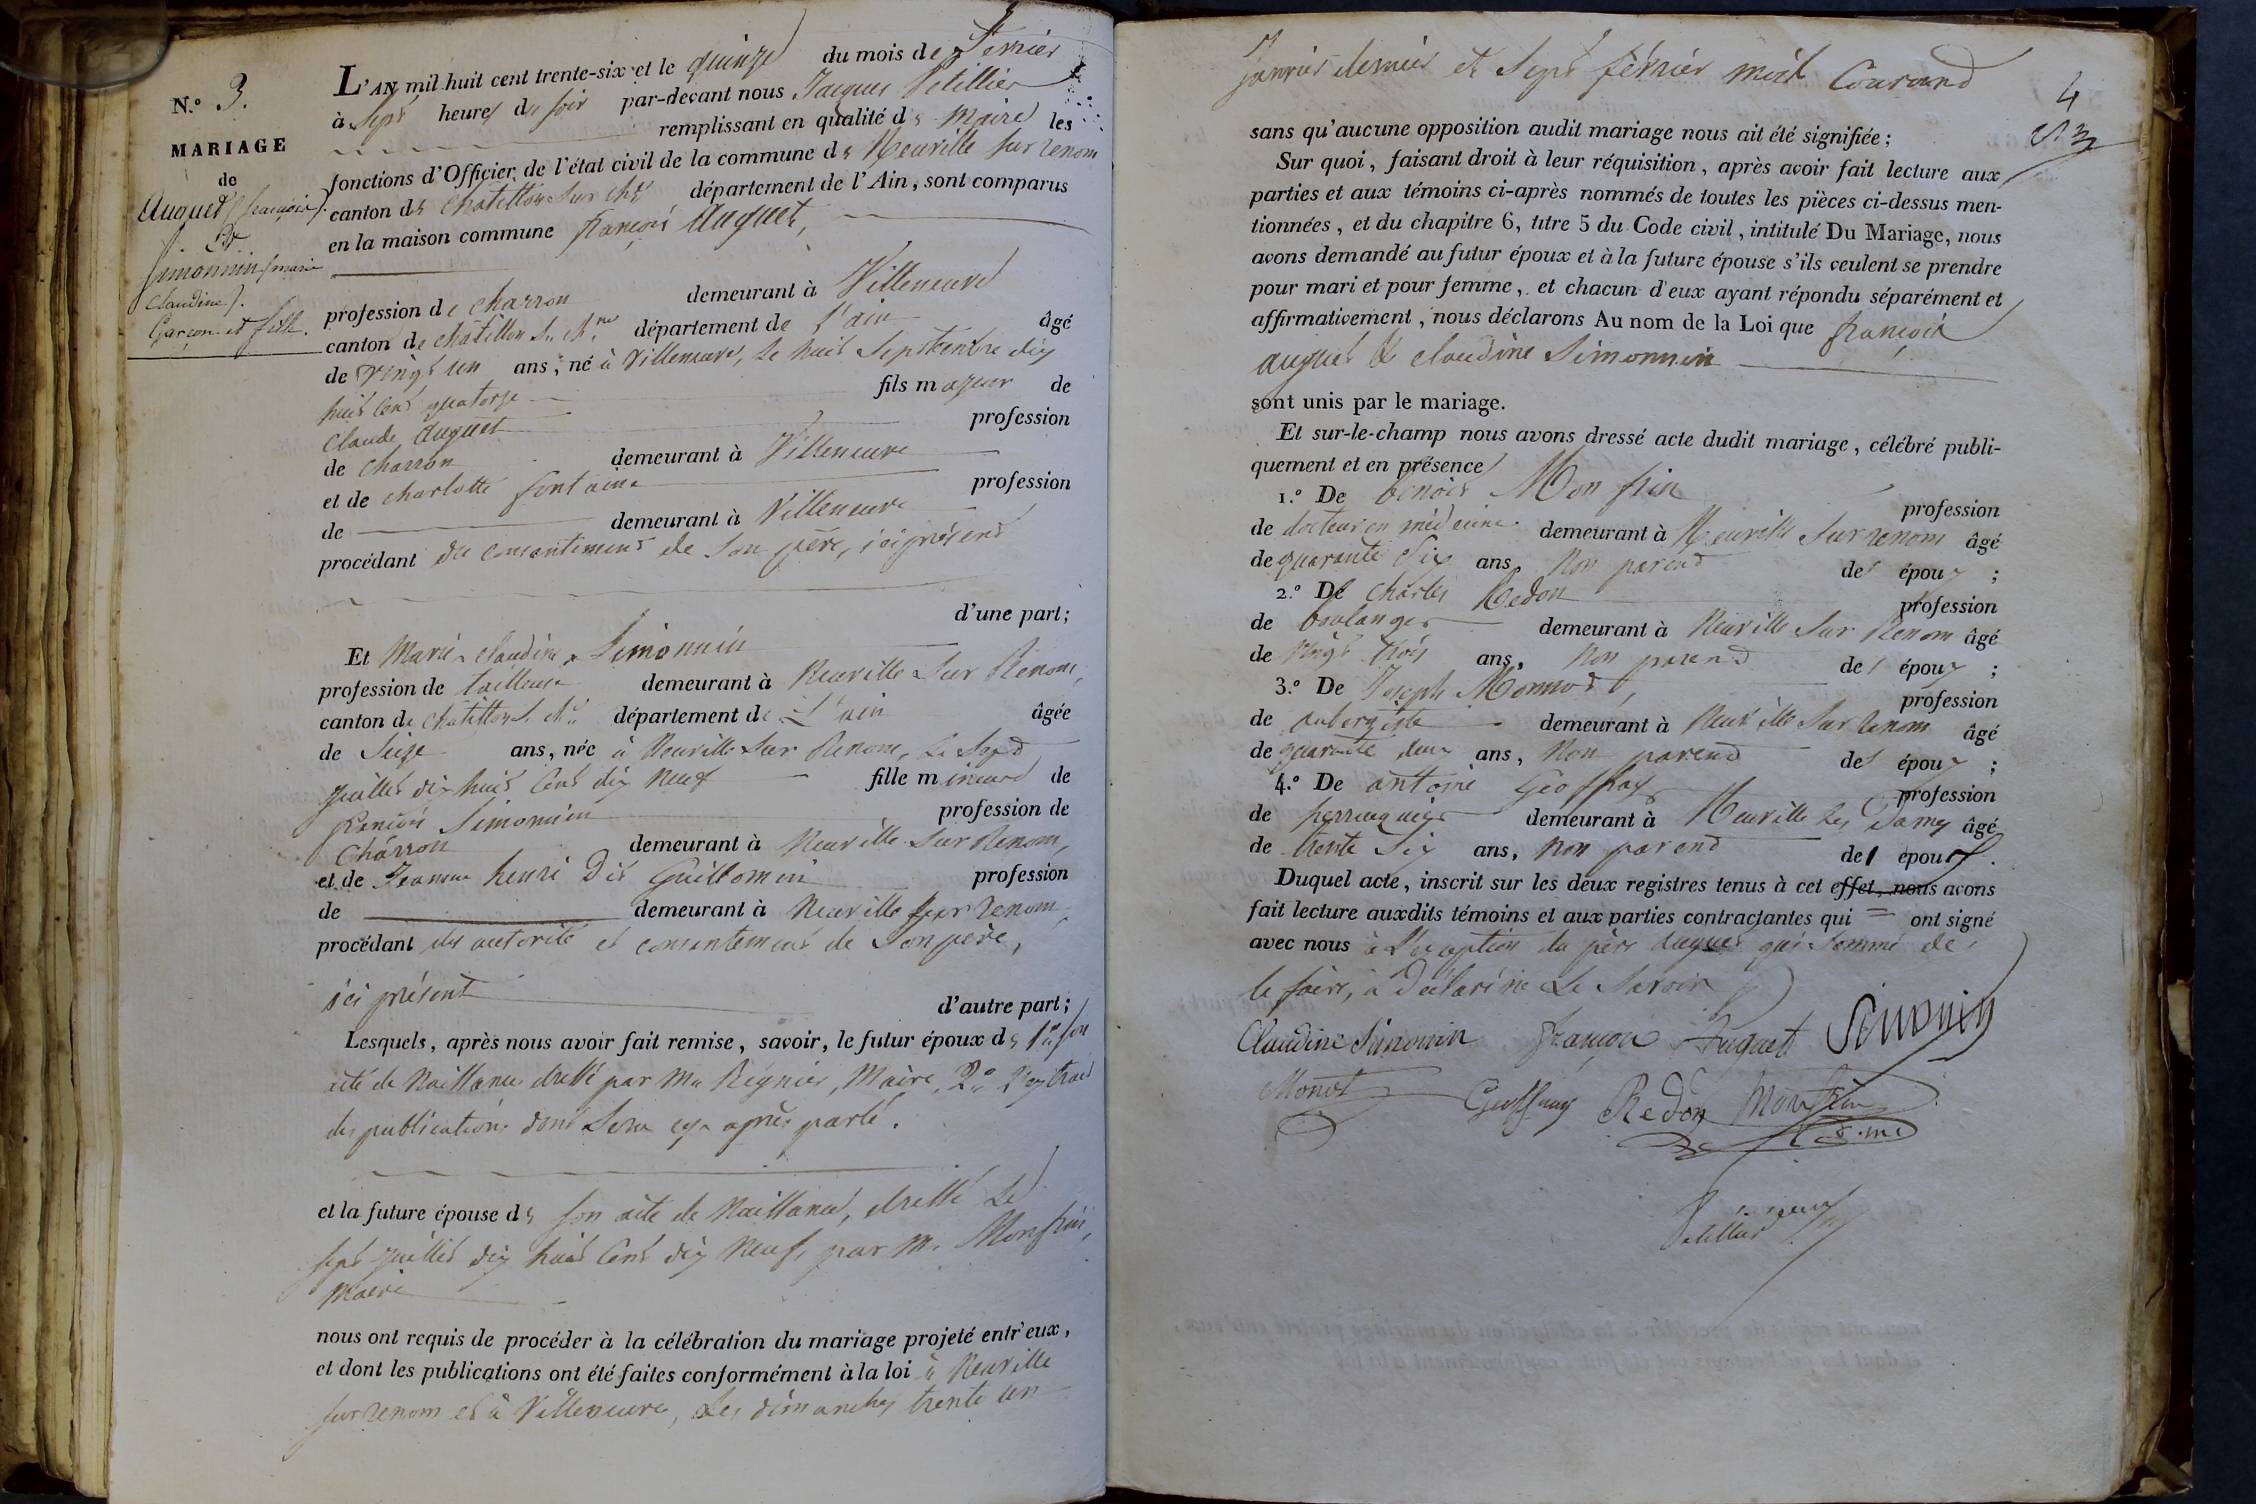 N.º 3.
MARIAGE
de
Auguet (françois)
&
Simonnin (marie
Claudine).
Garçon et fille.
L'AN mil huit cent trente-six et le quinze du mois de Février
à Sept heures du soir par-devant nous Jacques Petillier
remplissant en qualité de Maire les
fonctions d'Officier de l'état civil de la commune de Neuville sur renom
canton de Chatillon sur Ch.ne département de l'Ain, sont comparus
en la maison commune françois Auguet,
profession de charron demeurant à Villeneuve
canton de châtillon S. Ch.ne département de l'ain âgé
de vingt un ans, né à Villeneuve, le huit Septembre dix
huit cent quatorze fils majeur de
Claude Auguet profession
de charron demeurant à Villeneuve
et de charlotte fontaine profession
de demeurant à Villeneuve
procédant du consentement de son père, ici présent
d'une part;
Et Marie claudine Simonnin
profession de tailleuse demeurant à Neuville Sur Renom,
canton de châtillon S. Ch.ne département de L'ain âgée
de Seize ans, née à Neuville Sur Renom, le Sept
juillet dix huit cent dix neuf fille mineure de
françois Simonnin profession de
Charron demeurant à Neuville Sur Renom,
et de Jeanne henri dit Guillomin profession
de demeurant à Neuville sur renom,
procédant du autorité et consentement de Son père,
ici présent d'autre part;
Lesquels, après nous avoir fait remise, savoir, le futur époux de 1.º son
acte de Naissance dressé par Mr Régnier, Maire, 2.º l'extrait
des publications dont Sera cy après parlé.
et la future épouse de son acte de Naissance, dressé le
sept juillet dix huit cent dix Neuf, par Mr Monfrin,
Maire
nous ont requis de procéder à la célébration du mariage projeté entr'eux,
et dont les publications ont été faites conformément à la loi à Neuville
sur renom et à Villeneuve, Les dimanches trente un
janvier dernier et Sept février mois Courand
4
sans qu'aucune opposition audit mariage nous ait été signifiée;
Sur quoi, faisant droit à leur réquisition, après avoir fait lecture aux
parties et aux témoins ci-après nommés de toutes les pièces ci-dessus men-
tionnées, et du chapitre 6, titre 5 du Code civil, intitulé Du Mariage, nous
avons demandé au futur époux et à la future épouse s'ils veulent se prendre
pour mari et pour femme, et chacun d'eux ayant répondu séparément et
affirmativement, nous déclarons Au nom de la Loi que françois
auguet & claudine Simonnin
sont unis par le mariage.
Et sur-le-champ nous avons dressé acte dudit mariage, célébré publi-
quement et en présence
1.º De benoit Monfrin profession
de docteur en médecine demeurant à Neuville Sur renom âgé
de quarante Six ans, Non parend des époux;
2.º De Charles Redon profession
de boulanger demeurant à Neuville Sur Renom âgé
de vingt trois ans, Non parend des époux;
3.º De Joseph Monnot, profession
de aubergiste demeurant à Neuville Sur renom âgé
de quarante deux ans, Non parend des époux;
4.º De antoine Geoffray profession
de perruquier demeurant à Neuville les Dames âgé
de trente Six ans, Non parend des époux.
Duquel acte, inscrit sur les deux registres tenus à cet effet, nous avons
fait lecture auxdits témoins et aux parties contractantes qui ont signé
avec nous à L'exception du père auguet qui Sommé de
le faire, a déclaré ne Le Savoir
Claudine Simonin françois Auguet Simonin
Monot Geoffray Redon Monfrin
d. m.
Petillier